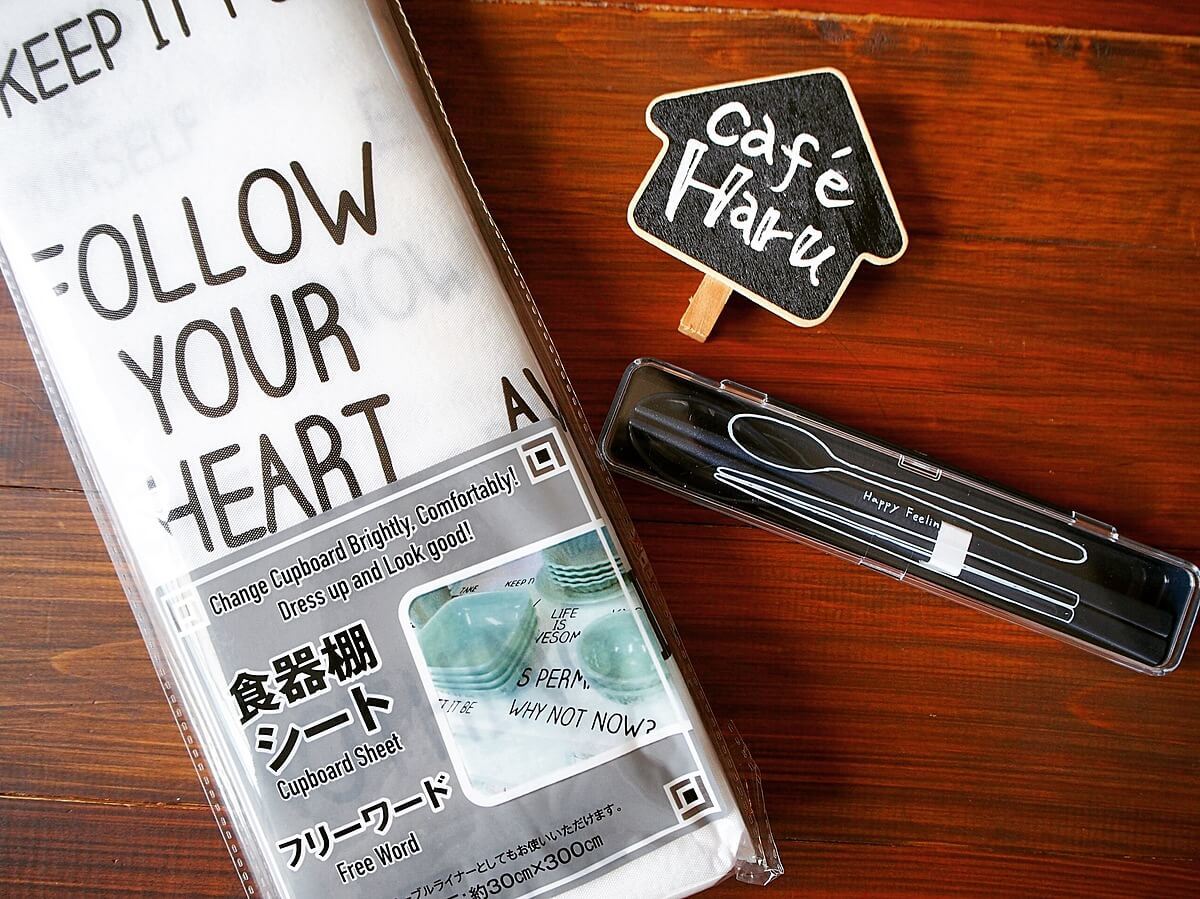 KEEP IT
FOLLOW
YOUR
HEART
NOW
Change Cupboard Brightly, Comfortably!
Dress up and Look good!
食器棚
シート
Cupboard Sheet
フリーワード
Free Word
ーブルライナーとしてもお使いいただけます。
約30cm×300cm
TAKE
KEEP IT
LIFE
IS
WHY NOT NOW?
IT BE
café
Haru
Happy Feelin